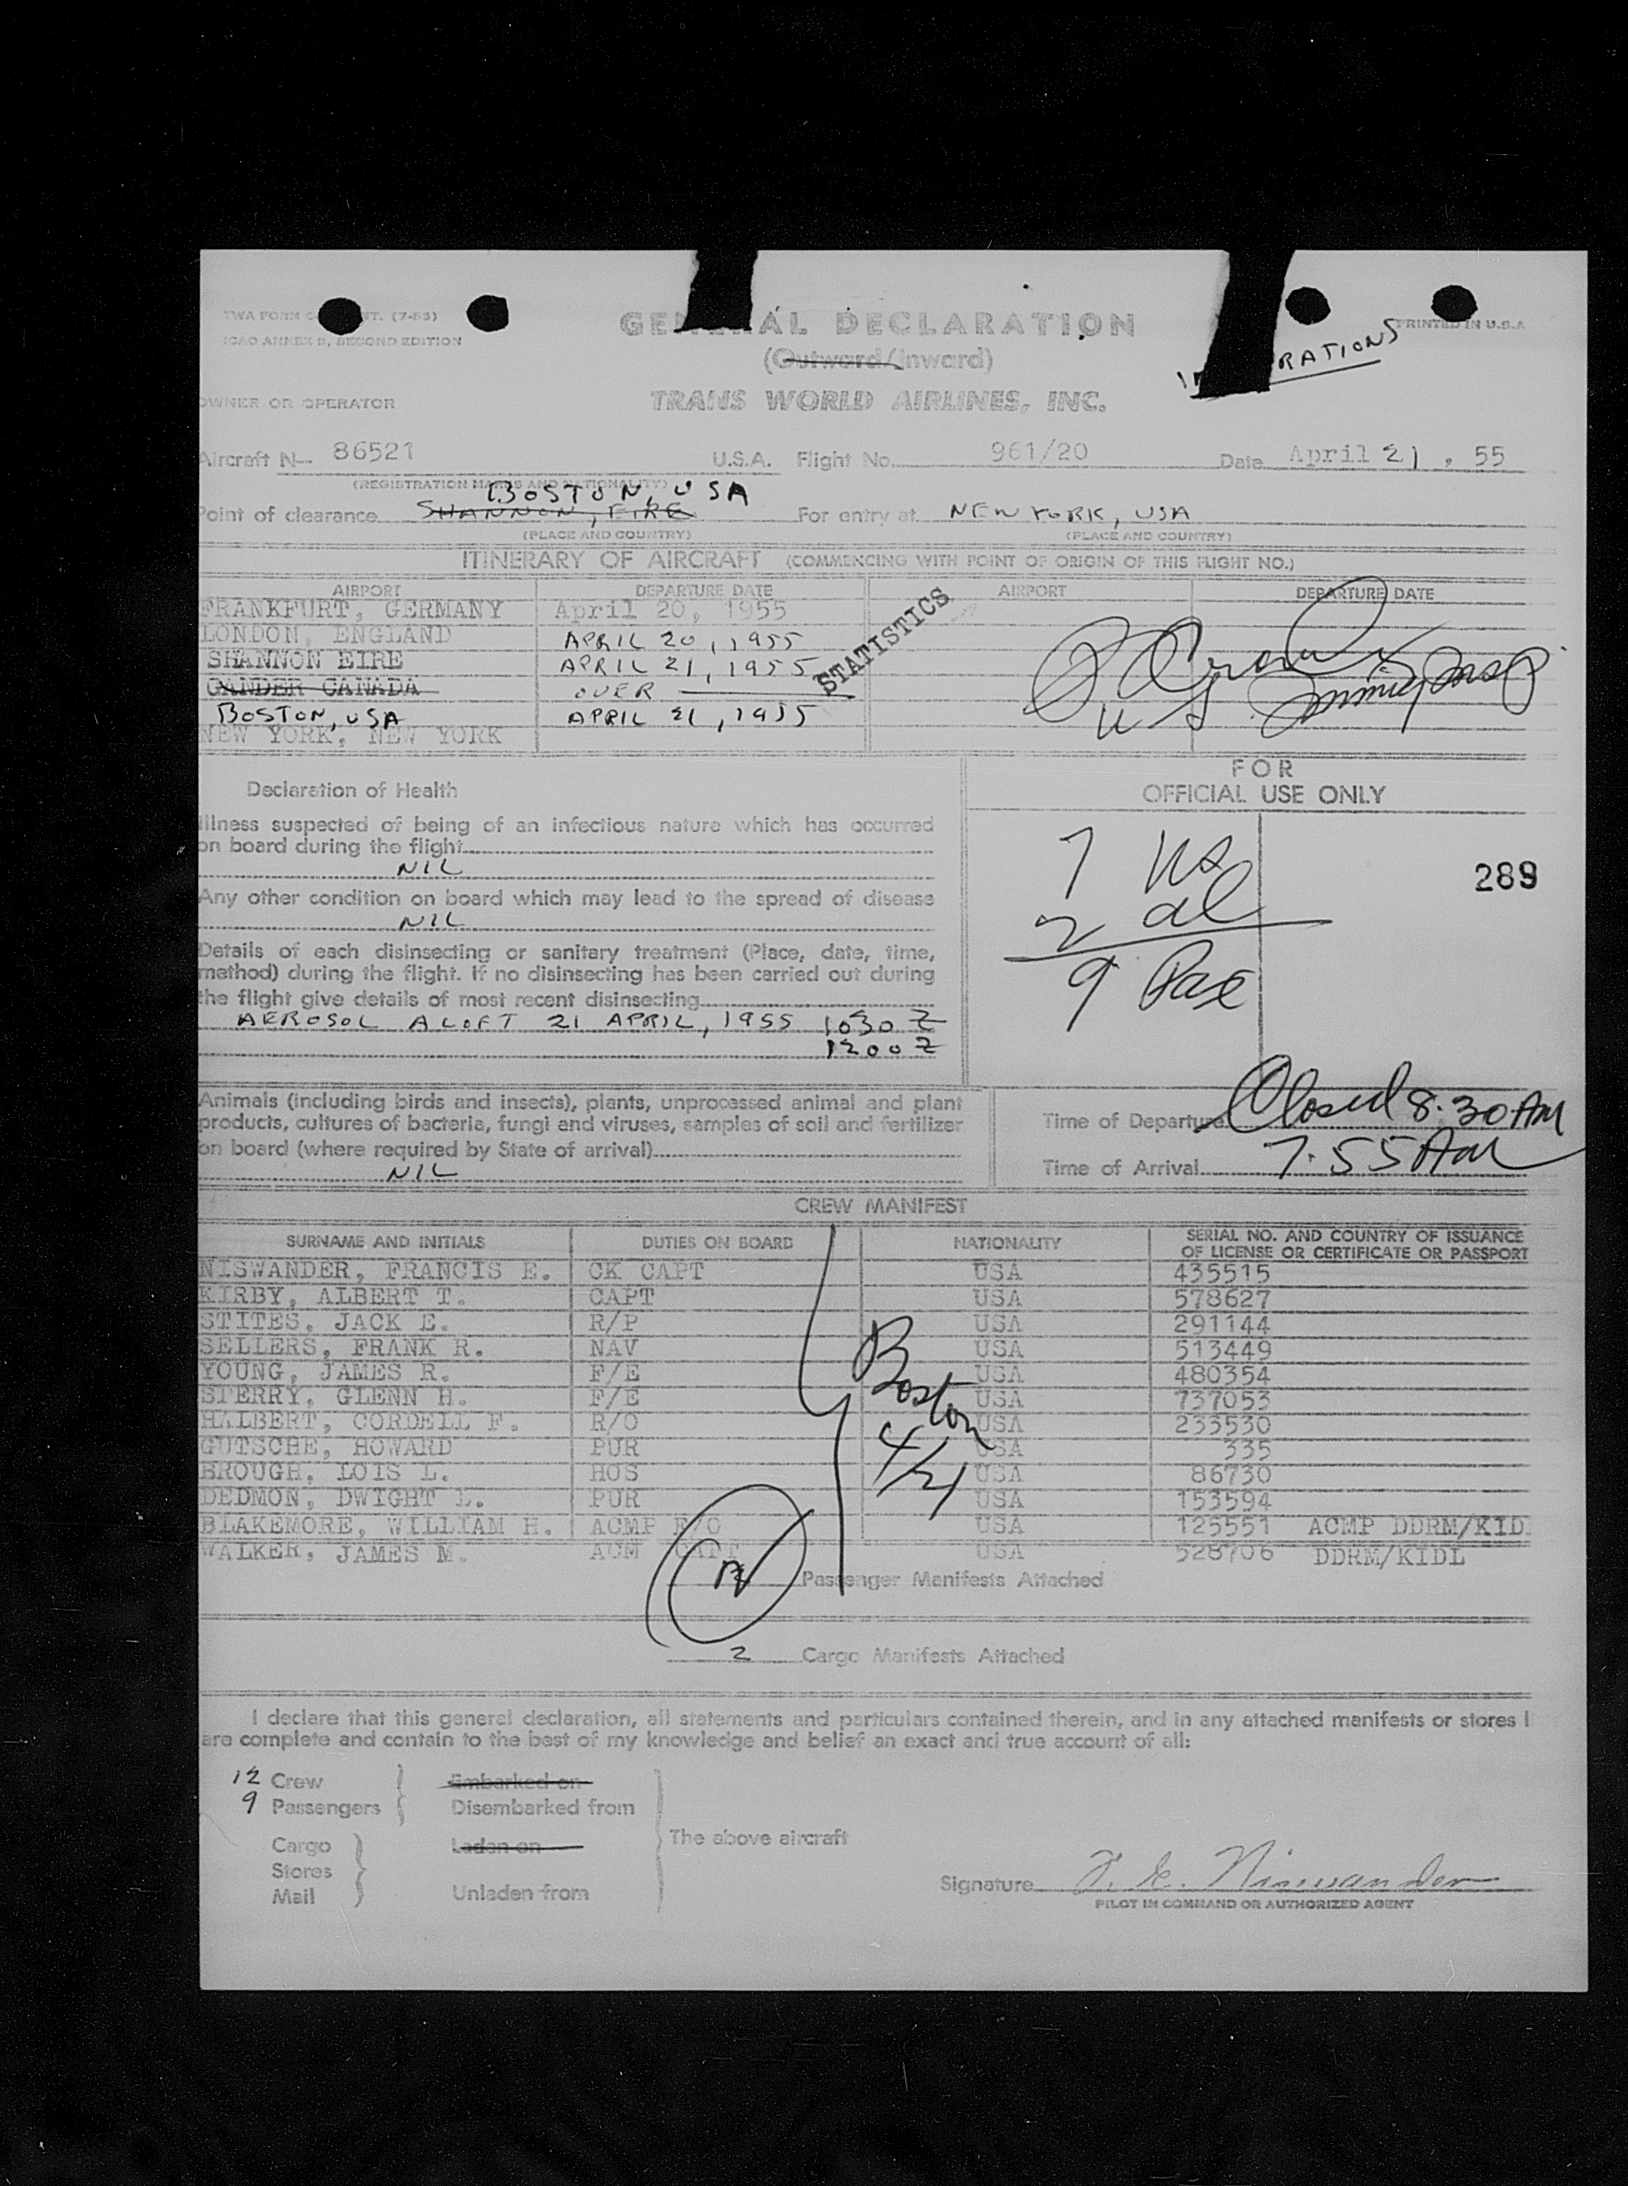 TWA FORM NT. (7-53)
ICAO ANNEX 9, SECOND EDITION
GENERAL DECLARATION
PRINTED IN U.S.A
(Outward/Inward)
RATIONS
OWNER OR OPERATOR
TRANS WORLD AIRLINES, INC.
Aircraft N— 86521 U.S.A. Flight No. 961/20 Date April 21, 55
(REGISTRATION MARKS AND NATIONALITY)
BOSTON, USA
Point of clearance SHANNON, EIRE For entry at NEW YORK, USA
(PLACE AND COUNTRY) (PLACE AND COUNTRY)
ITINERARY OF AIRCRAFT (COMMENCING WITH POINT OF ORIGIN OF THIS FLIGHT NO.)
AIRPORT DEPARTURE DATE AIRPORT DEPARTURE DATE
FRANKFURT, GERMANY April 20, 1955
LONDON, ENGLAND APRIL 20, 1955
SHANNON EIRE APRIL 21, 1955
STATISTICS
GANDER CANADA OVER
BOSTON, USA APRIL 21, 1955
NEW YORK, NEW YORK
US Immig Insp
Declaration of Health
Illness suspected of being of an infectious nature which has occurred
on board during the flight
NIL
Any other condition on board which may lead to the spread of disease
NIL
Details of each disinsecting or sanitary treatment (Place, date, time,
method) during the flight. If no disinsecting has been carried out during
the flight give details of most recent disinsecting
AEROSOL ALOFT 21 APRIL, 1955 1030 Z
1200 Z
FOR
OFFICIAL USE ONLY
7 US
2 al
9 Pax
289
Animals (including birds and insects), plants, unprocessed animal and plant
products, cultures of bacteria, fungi and viruses, samples of soil and fertilizer
on board (where required by State of arrival)
NIL
Time of Departure Closed 8:30 AM
Time of Arrival 7:55 AM
CREW MANIFEST
SURNAME AND INITIALS DUTIES ON BOARD NATIONALITY SERIAL NO. AND COUNTRY OF ISSUANCE
OF LICENSE OR CERTIFICATE OR PASSPORT
NISWANDER, FRANCIS E. CK CAPT USA 435515
KIRBY, ALBERT T. CAPT USA 578627
STITES, JACK E. R/P USA 291144
SELLERS, FRANK R. NAV USA 513449
YOUNG, JAMES R. F/E USA 480354
STERRY, GLENN H. F/E USA 737053
HALBERT, CORDELL F. R/O USA 233530
GUTSCHE, HOWARD PUR USA 335
BROUGH, LOIS L. HOS USA 86730
DEDMON, DWIGHT L. PUR USA 153594
BLAKEMORE, WILLIAM H. ACMP F/O USA 125551 ACMP DDRM/KID
WALKER, JAMES M. ACM CAPT USA 528706 DDRM/KIDL
Boston
4/21
Passenger Manifests Attached
2 Cargo Manifests Attached
I declare that this general declaration, all statements and particulars contained therein, and in any attached manifests or stores l
are complete and contain to the best of my knowledge and belief an exact and true account of all:
12 Crew Embarked on
9 Passengers Disembarked from
The above aircraft
Cargo Laden on
Stores
Mail Unladen from
Signature F. E. Niswander
PILOT IN COMMAND OR AUTHORIZED AGENT